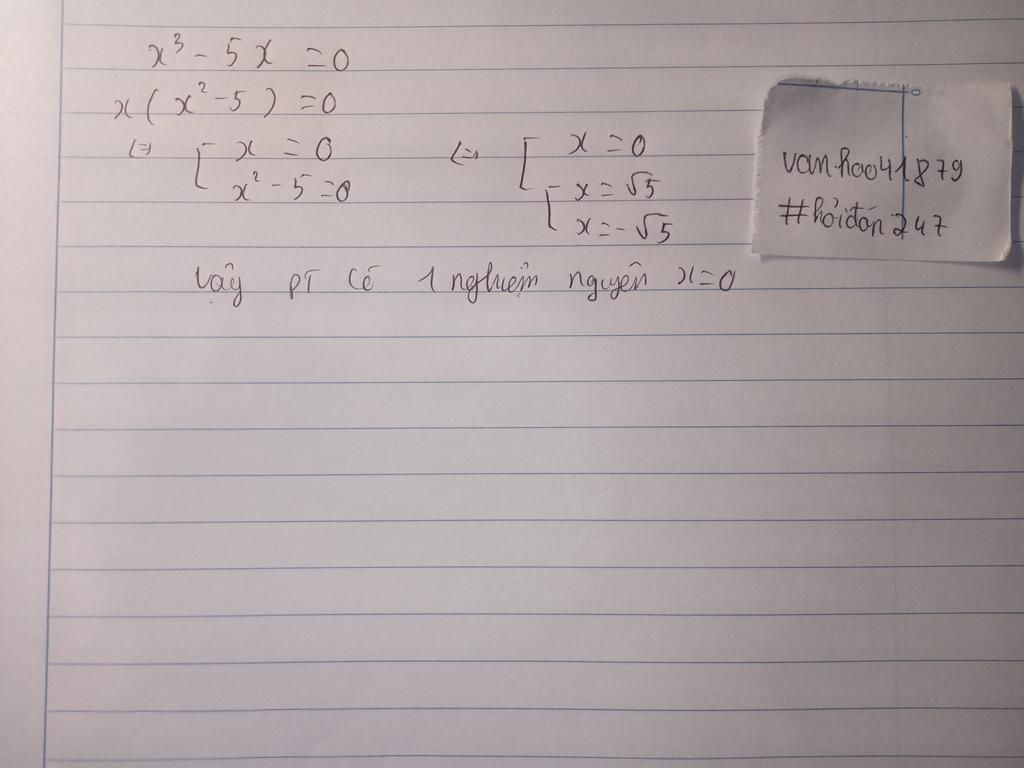 x³ - 5x = 0
x(x² - 5) = 0
⇔ [ x = 0 ⇔ [ x = 0
x² - 5 = 0 [ x = √5
x = -√5
Vậy PT có 1 nghiệm nguyên x = 0
vanhoo41879
#hỏiđáp247